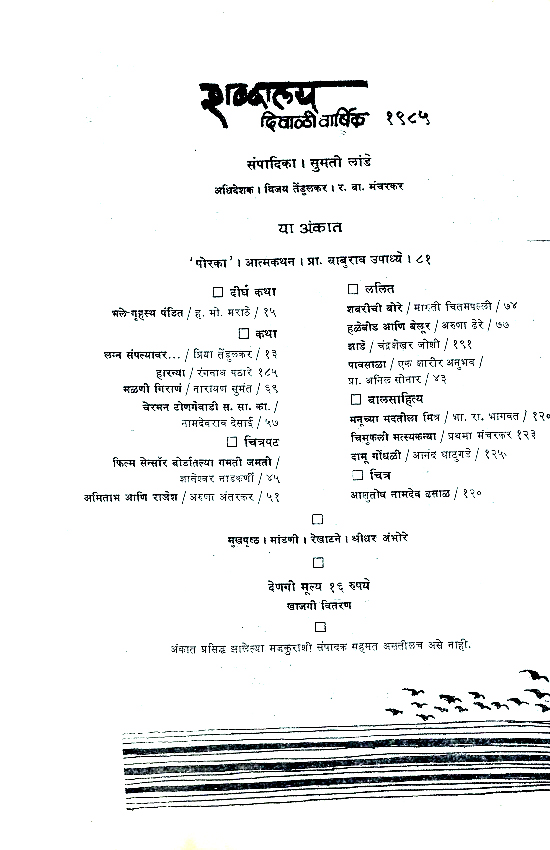 शब्दालय
दिवाळी वार्षिक १९८५
संपादिका । सुमती लांडे
अधिदेशक । विजय तेंडुलकर । र. बा. मंचरकर
या अंकात
'पोरका' । आत्मकथन । प्रा. बाबुराव उपाध्ये । ८१
□ दीर्घ कथा
भले-गृहस्थ पंडित / ह. मो. मराठे / १५
□ कथा
लग्न संपल्यावर... / प्रिया तेंडुलकर / १३
हारऱ्या / रंगनाथ पठारे १८५
मळणी मिराणं / नारायण सुमंत / ६९
चेरमन टोणगेवाडी स. सा. का. /
नामदेवराव देसाई / ५७
□ चित्रपट
फिल्म सेन्सॉर बोर्डातल्या गमती जमती /
ज्ञानेश्वर नाडकर्णी / ४५
अमिताभ आणि राजेश / अरुणा अंतरकर / ५१
□ ललित
शबरीची बोरे / मारुती चितमपल्ली / ७४
हळेबीड आणि बेलूर / अरुणा ढेरे / ७७
झाडं / चंद्रशेखर जोशी / १९१
पावसाळा / एक शारीर अनुभव /
प्रा. अनिल सोनार / ४३
□ बालसाहित्य
मनूच्या मदतीला मित्र / भा. रा. भागवत / १२०
चिमुकली मत्स्यकन्या / प्रथमा मंचरकर १२३
दामू गोंधळी / आनंद घाटुगडे / १२५
□ चित्र
आशुतोष नामदेव ढसाळ / १२०
□
मुखपृष्ठ । मांडणी । रेखाटने । श्रीधर अंभोरे
□
देणगी मूल्य १६ रुपये
खाजगी वितरण
□
अंकात प्रसिद्ध झालेल्या मजकुराशी संपादक सहमत असतीलच असे नाही.